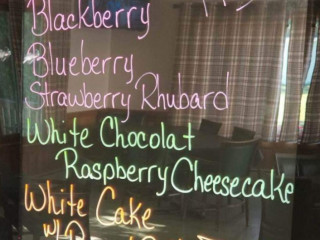 Blackberry
Blueberry
Strawberry Rhubard
White Chocolat
Raspberry Cheesecake
White Cake
w/